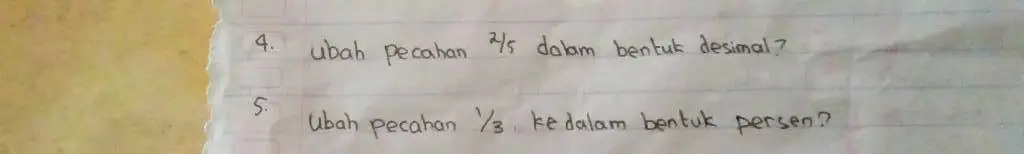 4. ubah pecahan 2/5 dalam bentuk desimal?
5. Ubah pecahan 1/3 ke dalam bentuk persen?